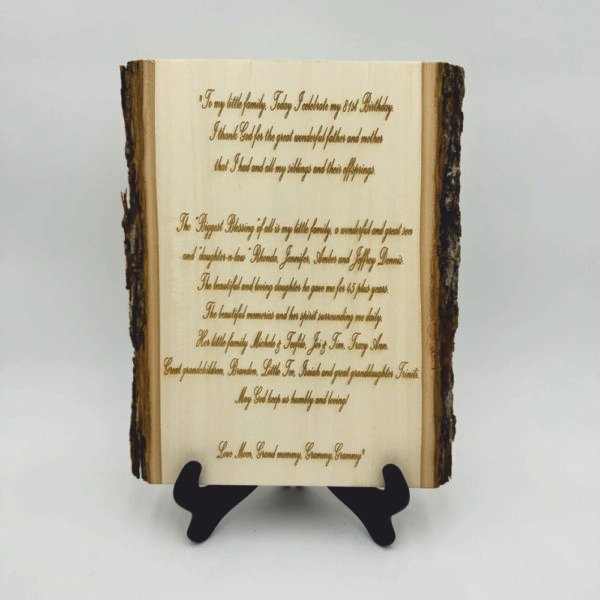 "To my little family, Today I celebrate my 81st Birthday.
I thank God for the great wonderful father and mother
that I had and all my siblings and their offsprings.
The "Biggest Blessing" of all is my little family, a wonderful and great son
and "daughter-n-law" Rhonda, Jennifer, Amber and Jeffrey Dennis
The beautiful and loving daughter he gave me for 45 plus years.
The beautiful memories and her spirit surrounding me daily,
Her little family Michele & & Tim, Tracy Ann.
Great grandchildren, Brandon, Little Tee, Isaiah and great granddaughter Trinity.
May God keep us humbly and loving!
Love Mom, Grand mommy, Grammy, Grammy"